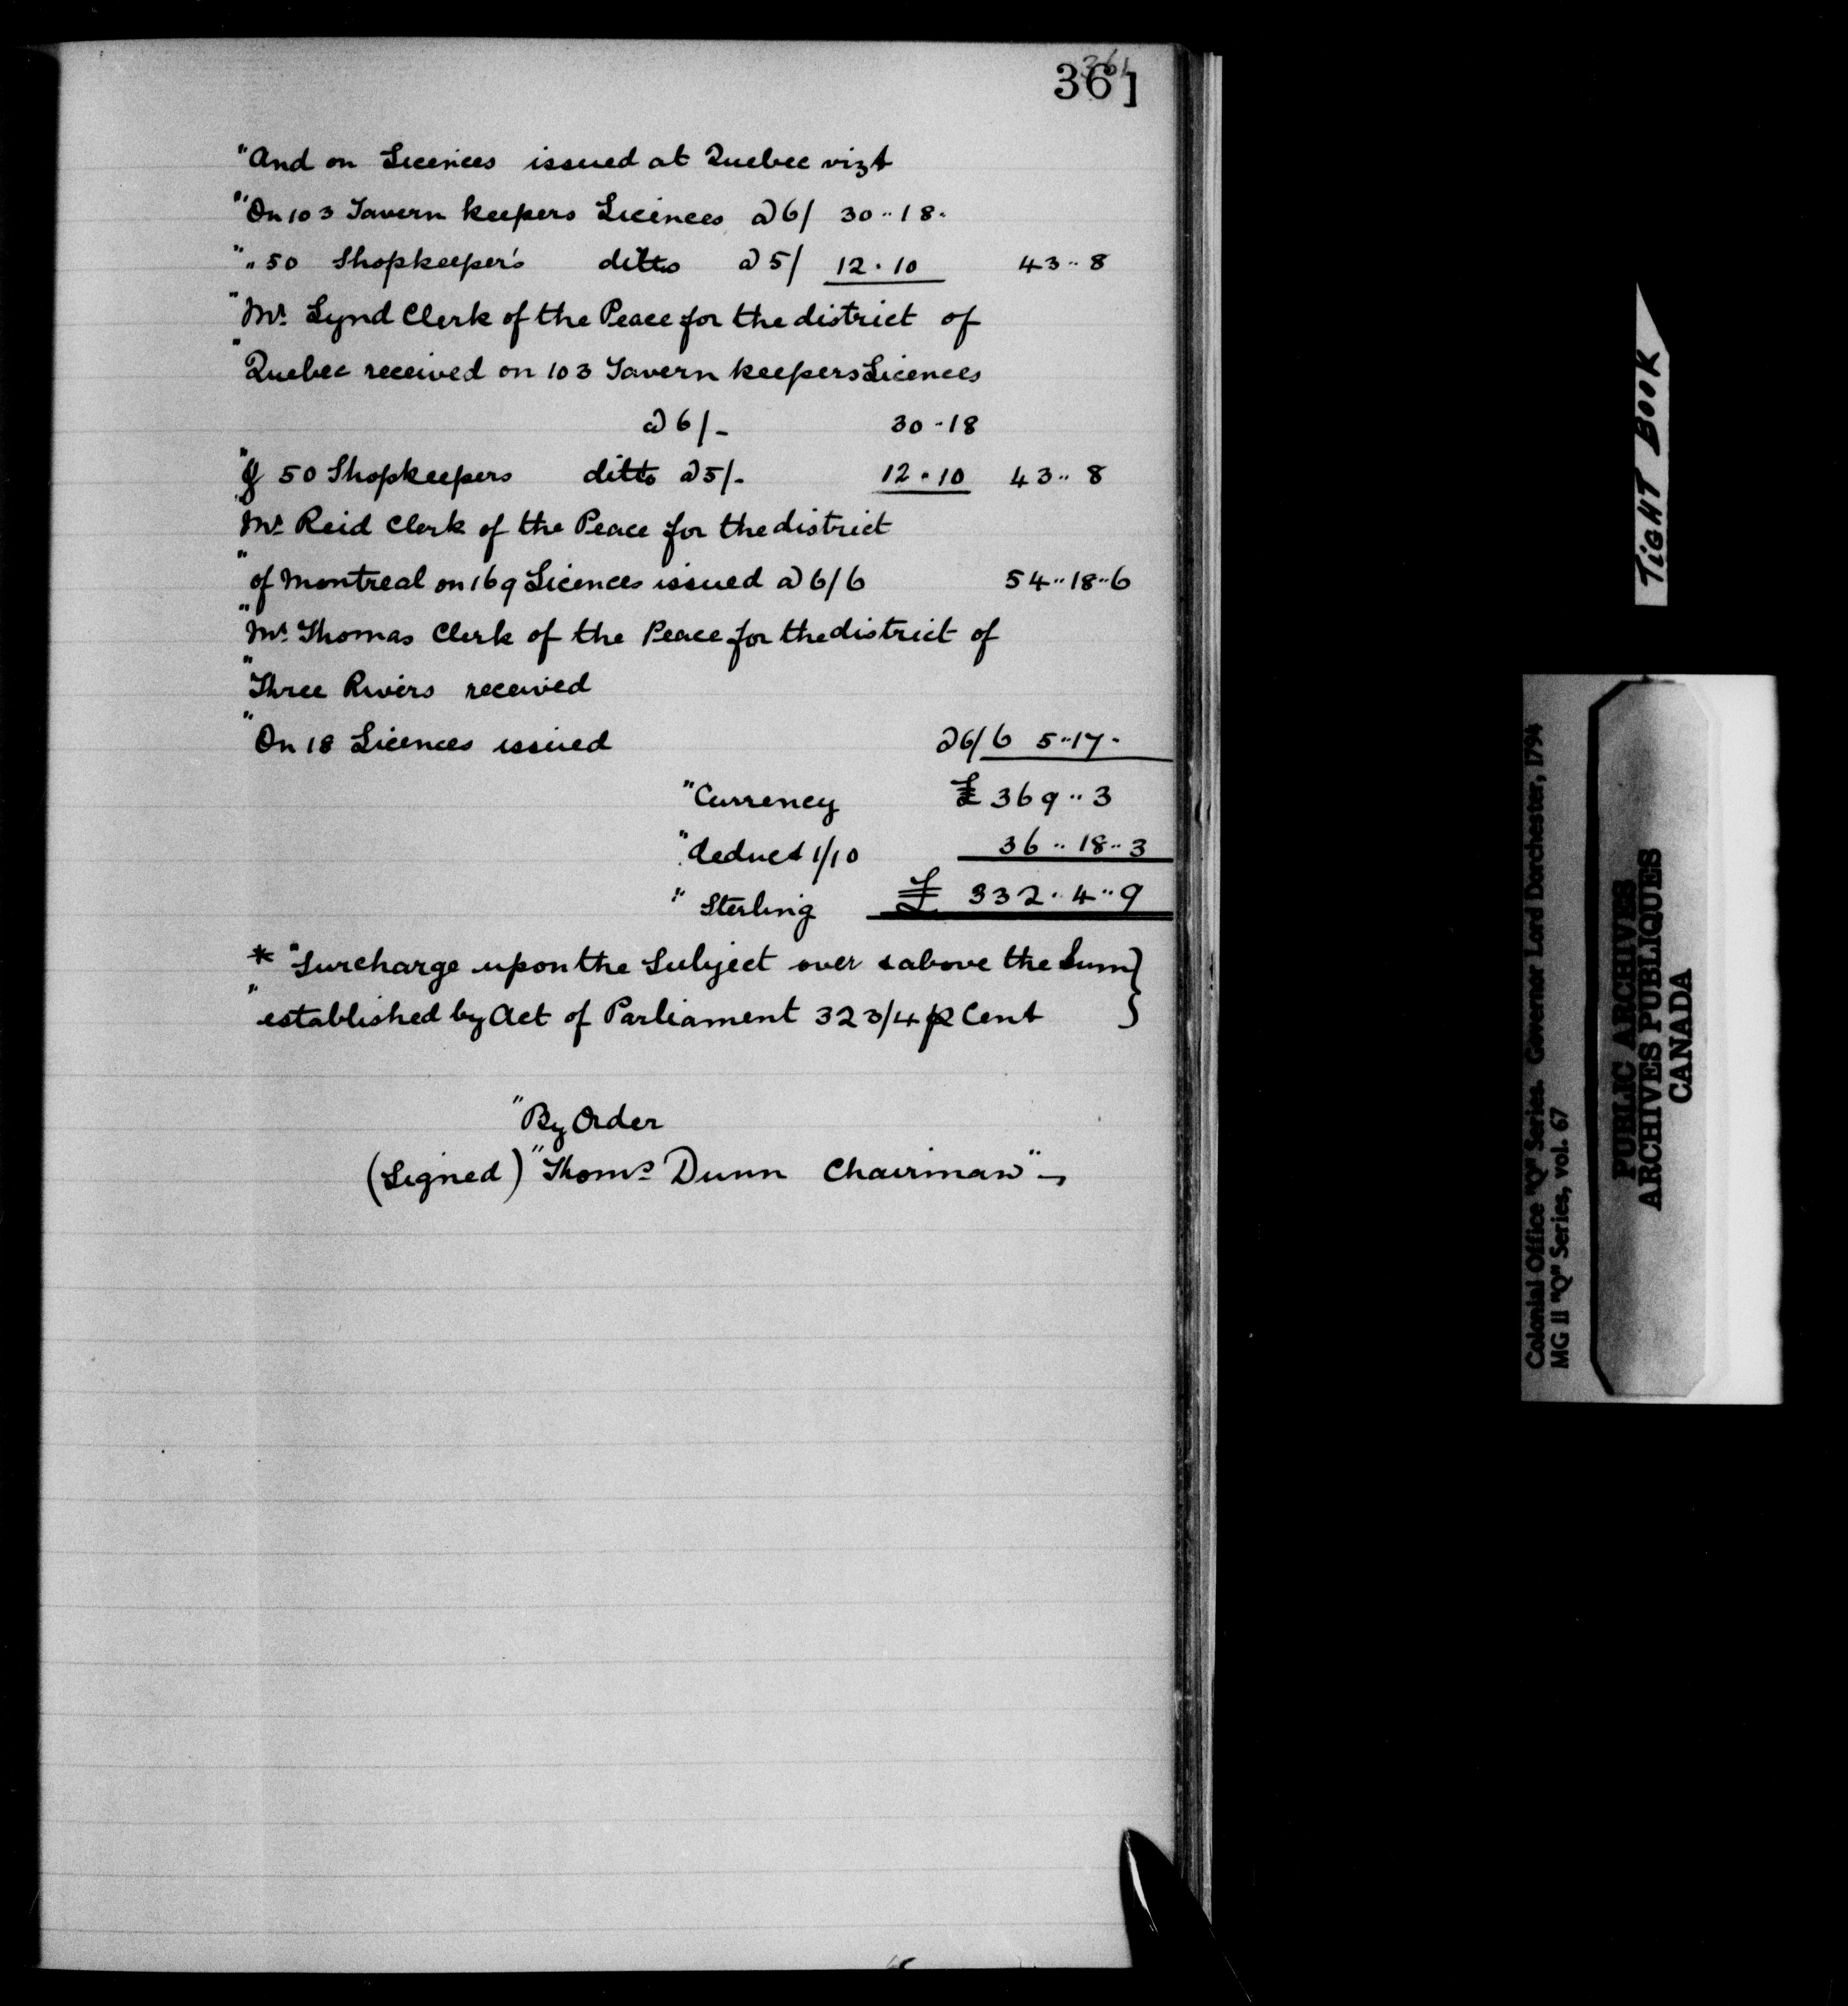 361
361
"And on Licences issued at Quebec vizt
"On 103 Tavern keepers Licences @ 6/ 30..18.
" " 50 Shopkeeper's ditto @ 5/ 12.10 43..8
"Mr. Lynd Clerk of the Peace for the district of
"Quebec received on 103 Tavern keepers Licences
@ 6/- 30-18
" & 50 Shopkeepers ditto @ 5/- 12.10 43..8
"Mr. Reid Clerk of the Peace for the district
"of Montreal on 169 Licences issued @ 6/6 54..18..6
"Mr. Thomas Clerk of the Peace for the district of
"Three Rivers received
"On 18 Licences issued @ 6/6 5..17.
"Currency £ 369..3
"deduct 1/10 36..18..3
"Sterling £ 332.4..9
* "Surcharge upon the Subject over & above the Sum }
"established by Act of Parliament 32 3/4 p Cent }
"By Order
(Signed) "Thoms Dunn Chairman"
TIGHT BOOK
Colonial Office "Q" Series. Governor Lord Dorchester, 1794
MG 11 "Q" Series, vol. 67
PUBLIC ARCHIVES
ARCHIVES PUBLIQUES
CANADA